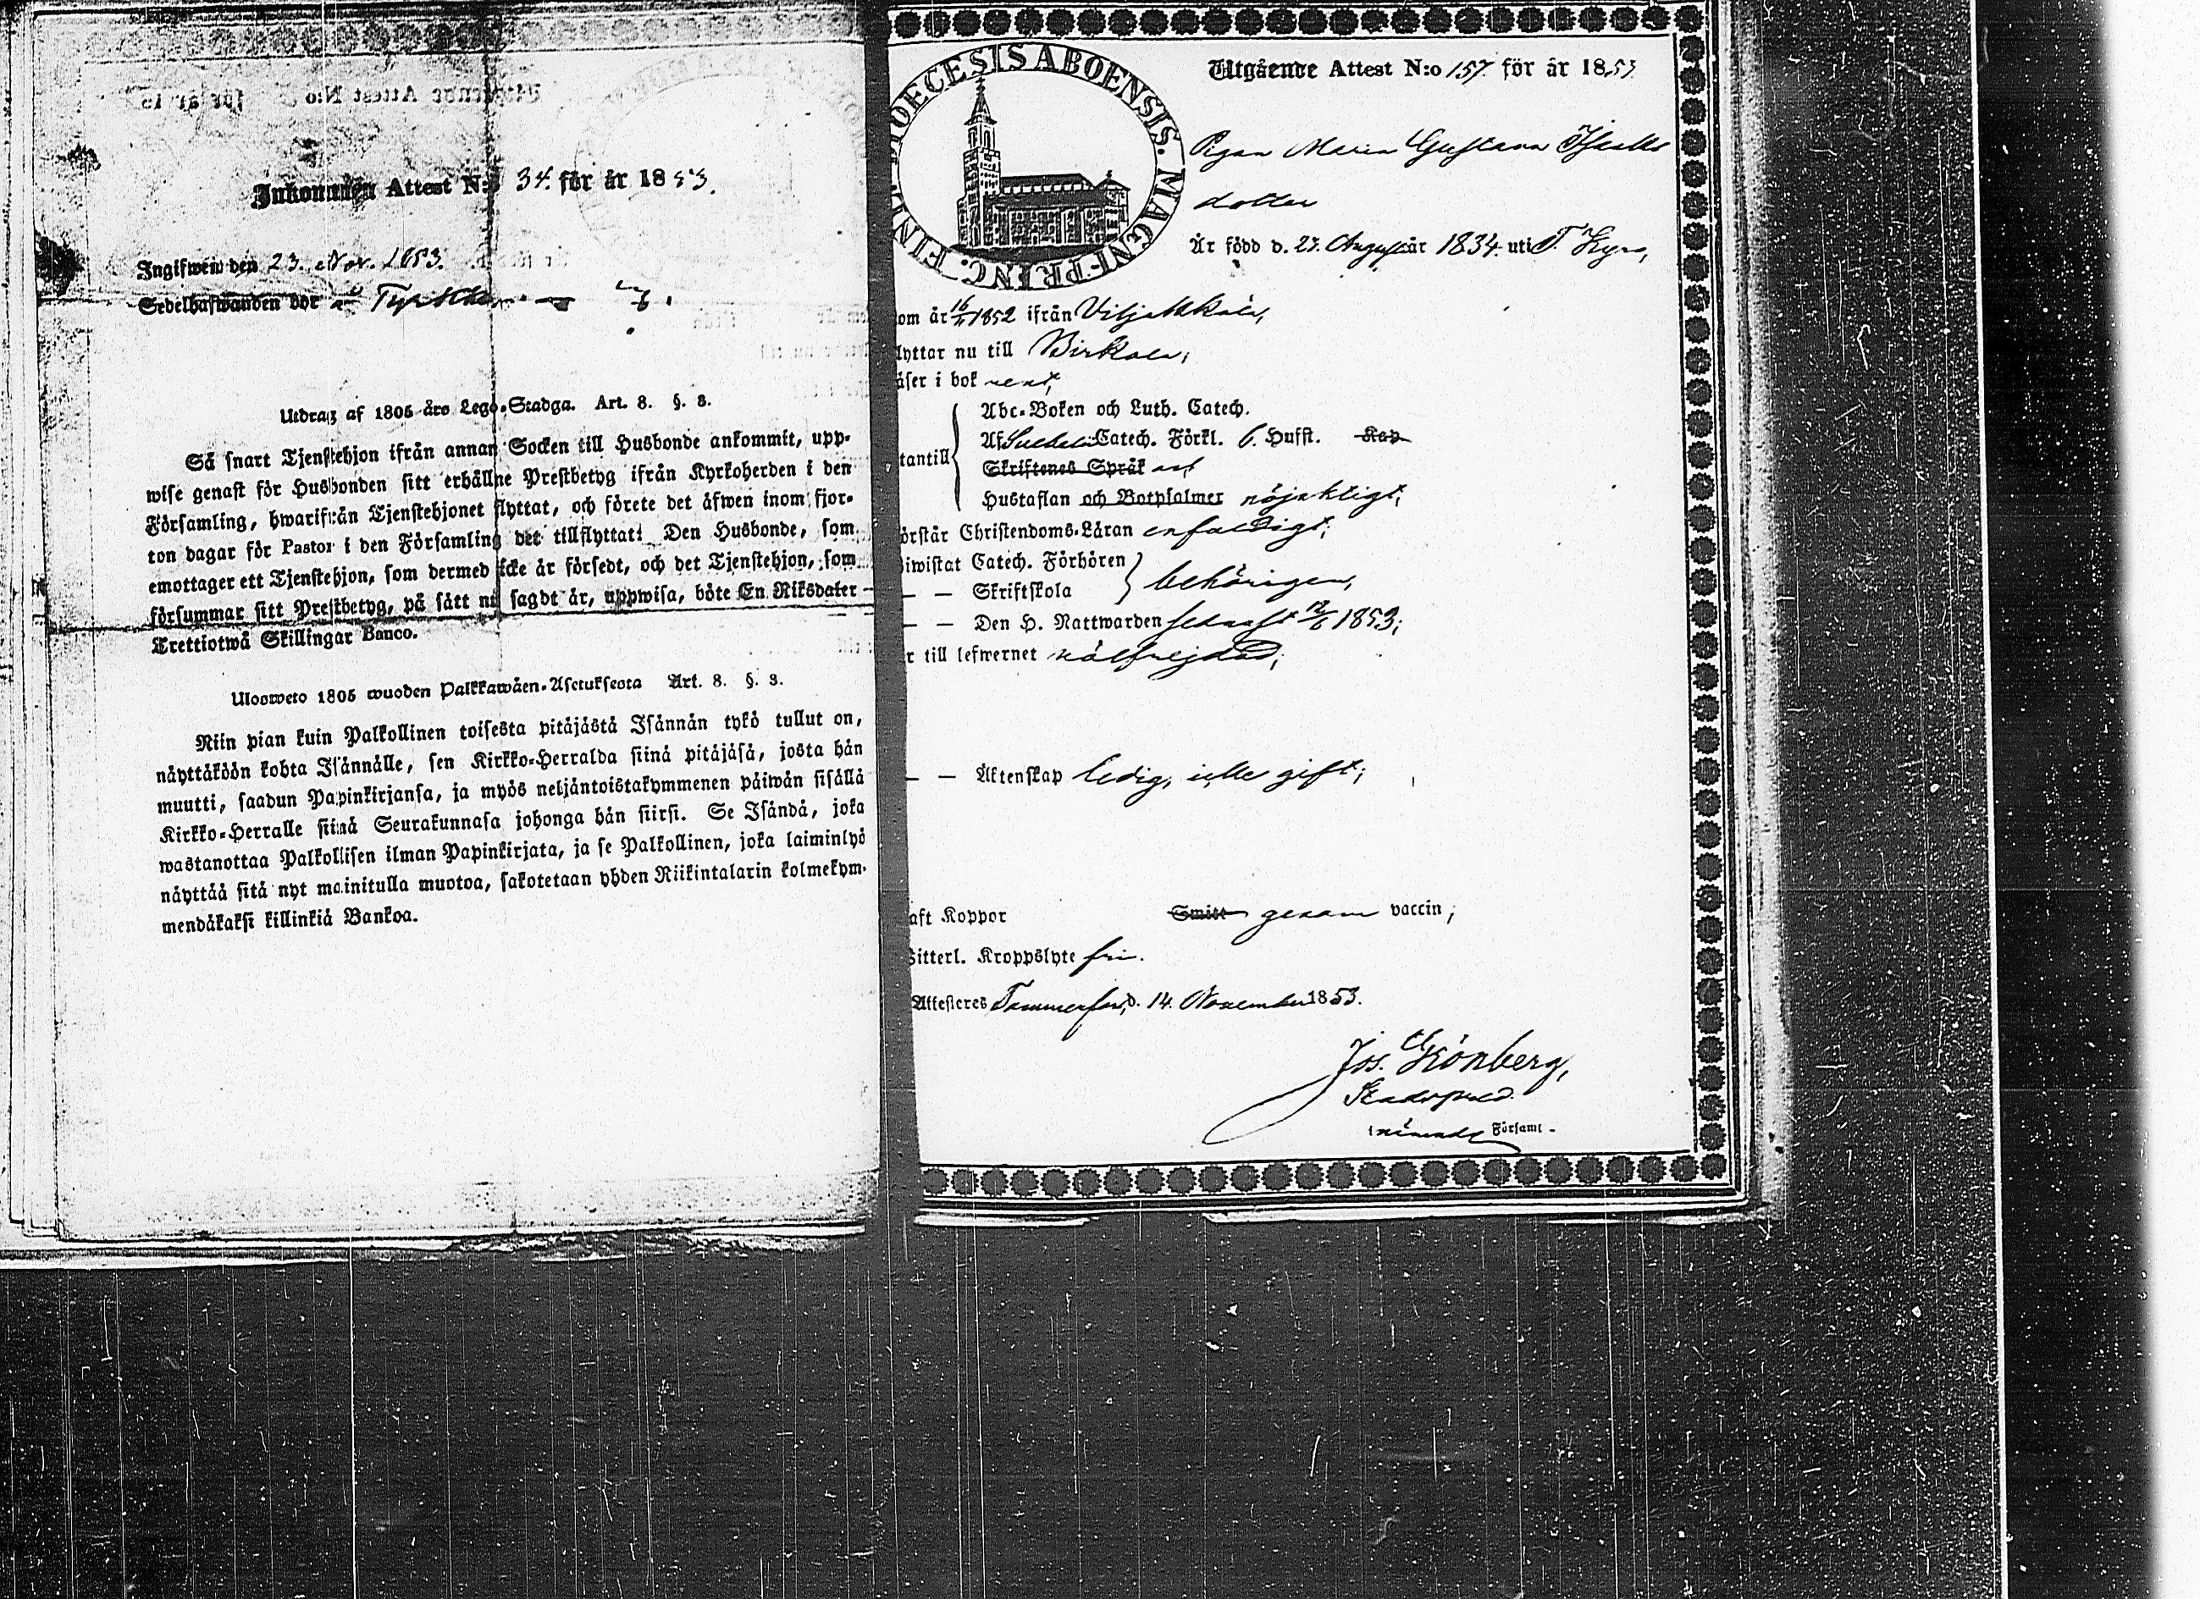 Inkommen Attest N:o 34. för år 1853.
Ingifwen den 23. Nov. 1853.
Sedelhafwanden bor
Utdrag af 1805 års Lego-Stadga. Art. 8. §. 3.
Så snart Tjenstehjon ifrån annan Socken till Husbonde ankommit, upp-
wise genast för Husbonden sitt erhållne Prestbetyg ifrån Kyrkoherden i den
Församling, hwarifrån Tjenstehjonet flyttat, och förete det äfwen inom fjor-
ton dagar för Pastor i den Församling det tillflyttat! Den Husbonde, som
emottager ett Tjenstehjon, som dermed icke är försedt, och det Tjenstehjon, som
försummar sitt Prestbetyg, på sätt nu sagdt är, uppwisa, böte En Riksdaler
Trettiotwå Skillingar Banco.
Ulosweto 1805 wuoden Palkkawäen-Asetuksesta Art. 8. §. 3.
Niin pian kuin Palkollinen toisesta pitäjästä Isännän tykö tullut on,
näyttäköön kohta Isännälle, sen Kirkko-Herralda siinä pitäjäsä, josta hän
muutti, saadun Papinkirjansa, ja myös neljäntoistakymmenen päiwän sisällä
Kirkko-Herralle siinä Seurakunnasa johonga hän siirsi. Se Isändä, joka
wastanottaa Palkollisen ilman Papinkirjata, ja se Palkollinen, joka laiminlyö
näyttää sitä nyt mainitulla muotoa, sakotetaan yhden Riikintalarin kolmekym-
mendäkaksi killinkiä Bankoa.
DIOECESIS ABOENSIS. MAGNI-PRINC. FINL.
Utgående Attest N:o 157. för år 1853
Pigan Maria Gustava
dotter
Är född d. 27. August år 1834. uti T. Kyro,
om år 16/11 1852 ifrån Viljakkala,
lyttar nu till Birkala,
äser i bok rent,
tantill
Abc-Boken och Luth. Catech.
Af Svebelii Catech. Förkl. 6. Hufst. Kap
Skriftenes Språk
Hustaflan och Botpsalmer nöjaktigt,
örstår Christendoms-Läran enfaldigt;
iwistat Catech. Förhören
— — Skriftskola
behörigen,
— — Den H. Nattwarden senast 12/6 1853;
r till lefwernet välfrejdad;
— — Äktenskap ledig, icke gift;
aft Koppor Smitt genom vaccin;
Witterl. Kroppslyte fri.
Attesteres Tammerfors, d. 14. November 1853.
Jos. Grönberg,
Församl -